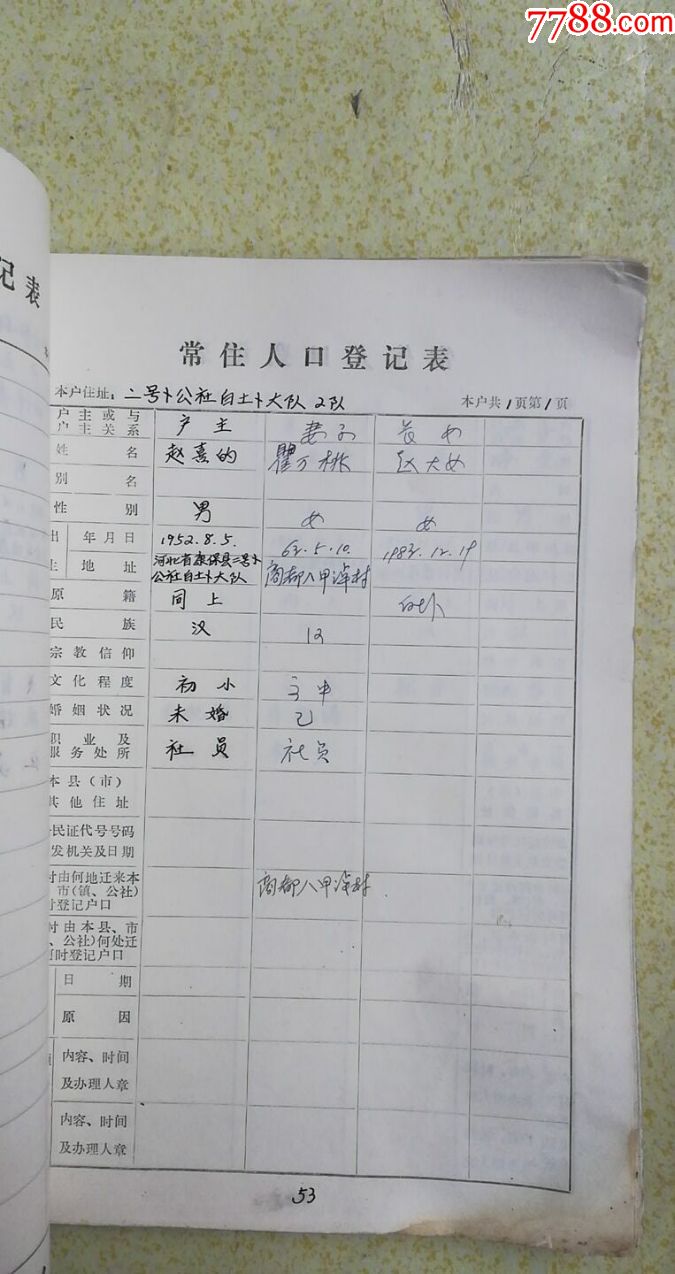 7788.com
记表
常住人口登记表
本户住址:二号卜公社白土卜大队2队 本户共1页第1页
户主或与 户主 妻子 长女
户主关系
姓名 赵喜的 瞿万桃 赵大女
别名
性别 男 女 女
出 年月日 1952.8.5. 62.5.10. 1983.12.19
生 地址 河北省康保县二号卜 商都八甲
公社白土卜大队
原籍 同上
民族 汉 汉
宗教信仰
文化程度 初小
婚姻状况 未婚 已
职业及 社员 社员
服务处所
本县(市)
其他住址
民证代号号码
发机关及日期
时由何地迁来本 商都八甲
市(镇、公社)
时登记户口
时由本县、市
、公社)何处迁
何时登记户口
日期
原因
内容、时间
及办理人章
内容、时间
及办理人章
53